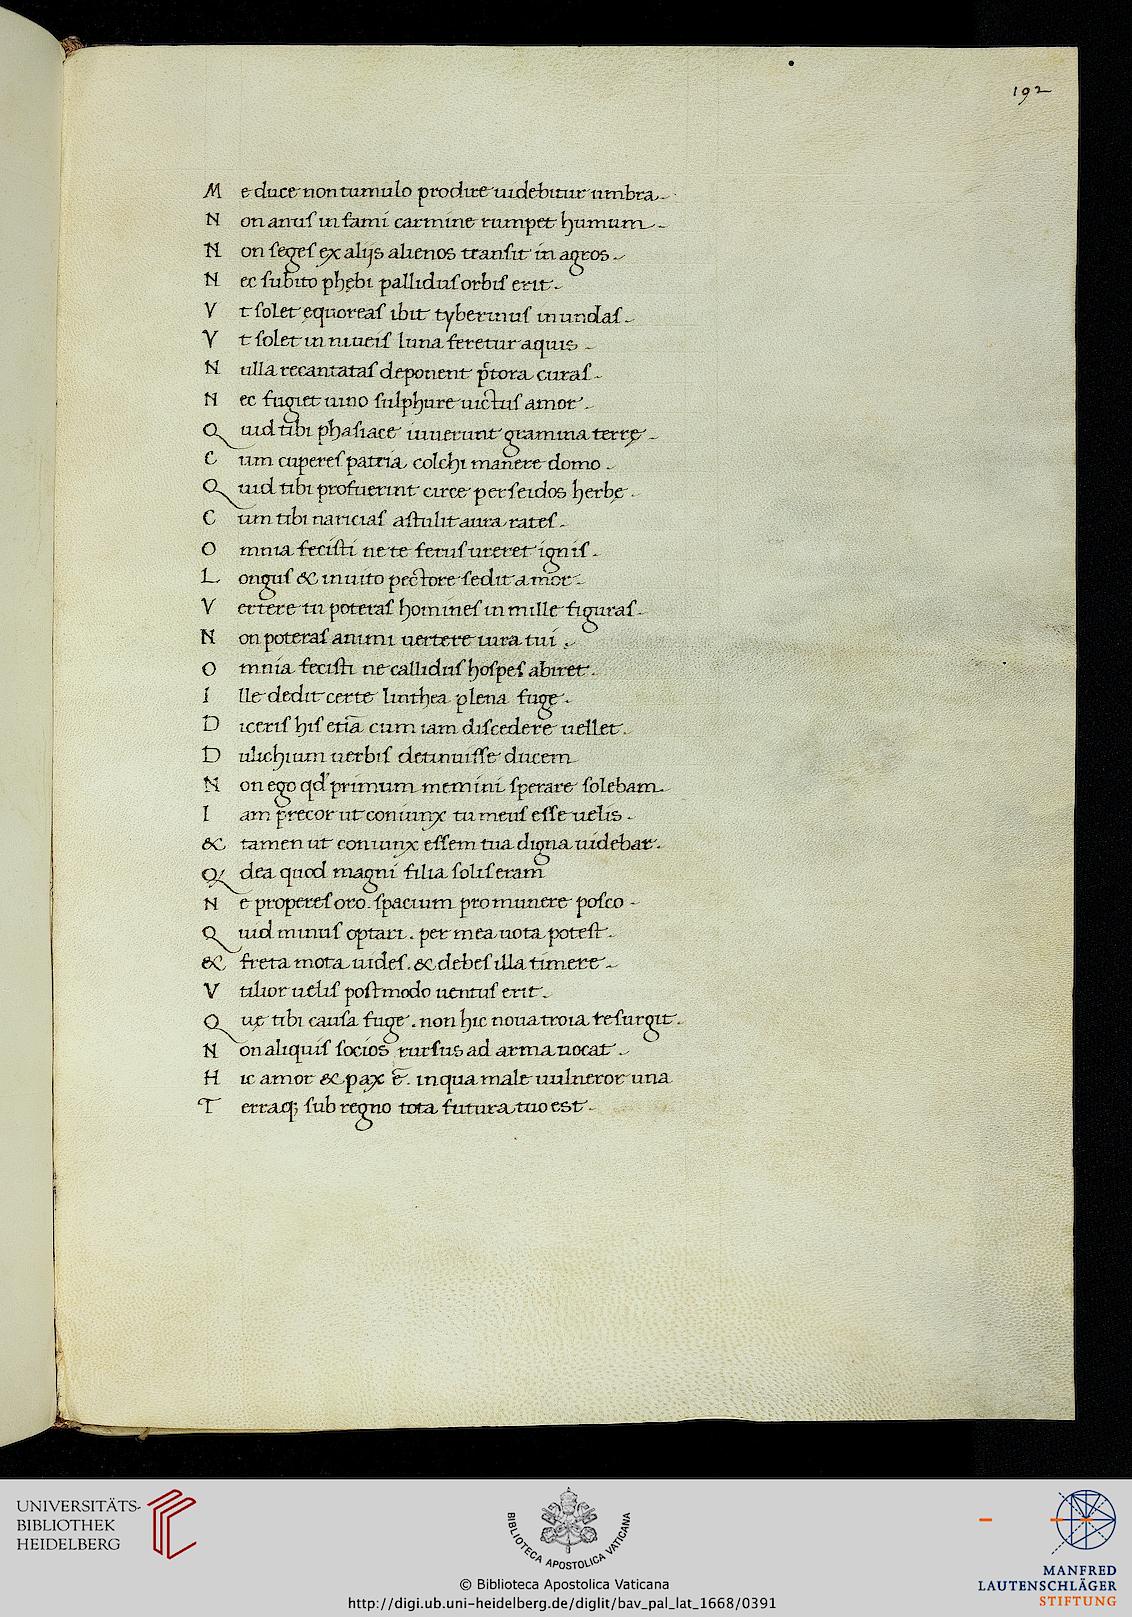 192
M e duce non tumulo prodire uidebitur umbra.
N on anus infami carmine rumpet humum.
N on seges ex alijs alienos transit in agros.
N ec subito phębi pallidus orbis erit.
V t solet ęquoreas ibit tyberinus in undas.
V t solet in niueis luna feretur aquis.
N ulla recantatas deponent p̃tora curas.
N ec fugiet uiuo sulphure uictus amor.
Q uid tibi phasiace iuuerunt gramina terrę.
C um cuperes patria colchi manere domo.
Q uid tibi profuerint circe perseidos herbę.
C um tibi naricias astulit aura rates.
O mnia fecisti ne te ferus ureret ignis.
L ongus & inuito pectore sedit amor.
V ertere tu poteras homines in mille figuras.
N on poteras animi uertere iura tui.
O mnia fecisti ne callidus hospes abiret.
I lle dedit certe linthea plena fugę.
D iceris his etiā cum iam discedere uellet.
D ulichium uerbis detinuisse ducem
N on ego qd̛ primum memini sperare solebam.
I am precor ut coniunx tu meus esse uelis.
& tamen ut coniunx essem tua digna uidebar.
Q dea quod magni filia solis eram
N e properes oro. spacium pro munere posco.
Q uid minus optari. per mea uota potest.
& freta mota uides. & debes illa timere.
V tilior uelis postmodo uentus erit.
Q uę tibi causa fugę. non hic noua troia resurgit.
N on aliquis socios rursus ad arma uocat.
H ic amor & pax ē. in qua male uulneror una
T erraq; sub regno tota futura tuo est.
UNIVERSITÄTS-
BIBLIOTHEK
HEIDELBERG
BIBLIOTECA APOSTOLICA VATICANA
MANFRED
LAUTENSCHLÄGER
STIFTUNG
© Biblioteca Apostolica Vaticana
http://digi.ub.uni-heidelberg.de/diglit/bav_pal_lat_1668/0391